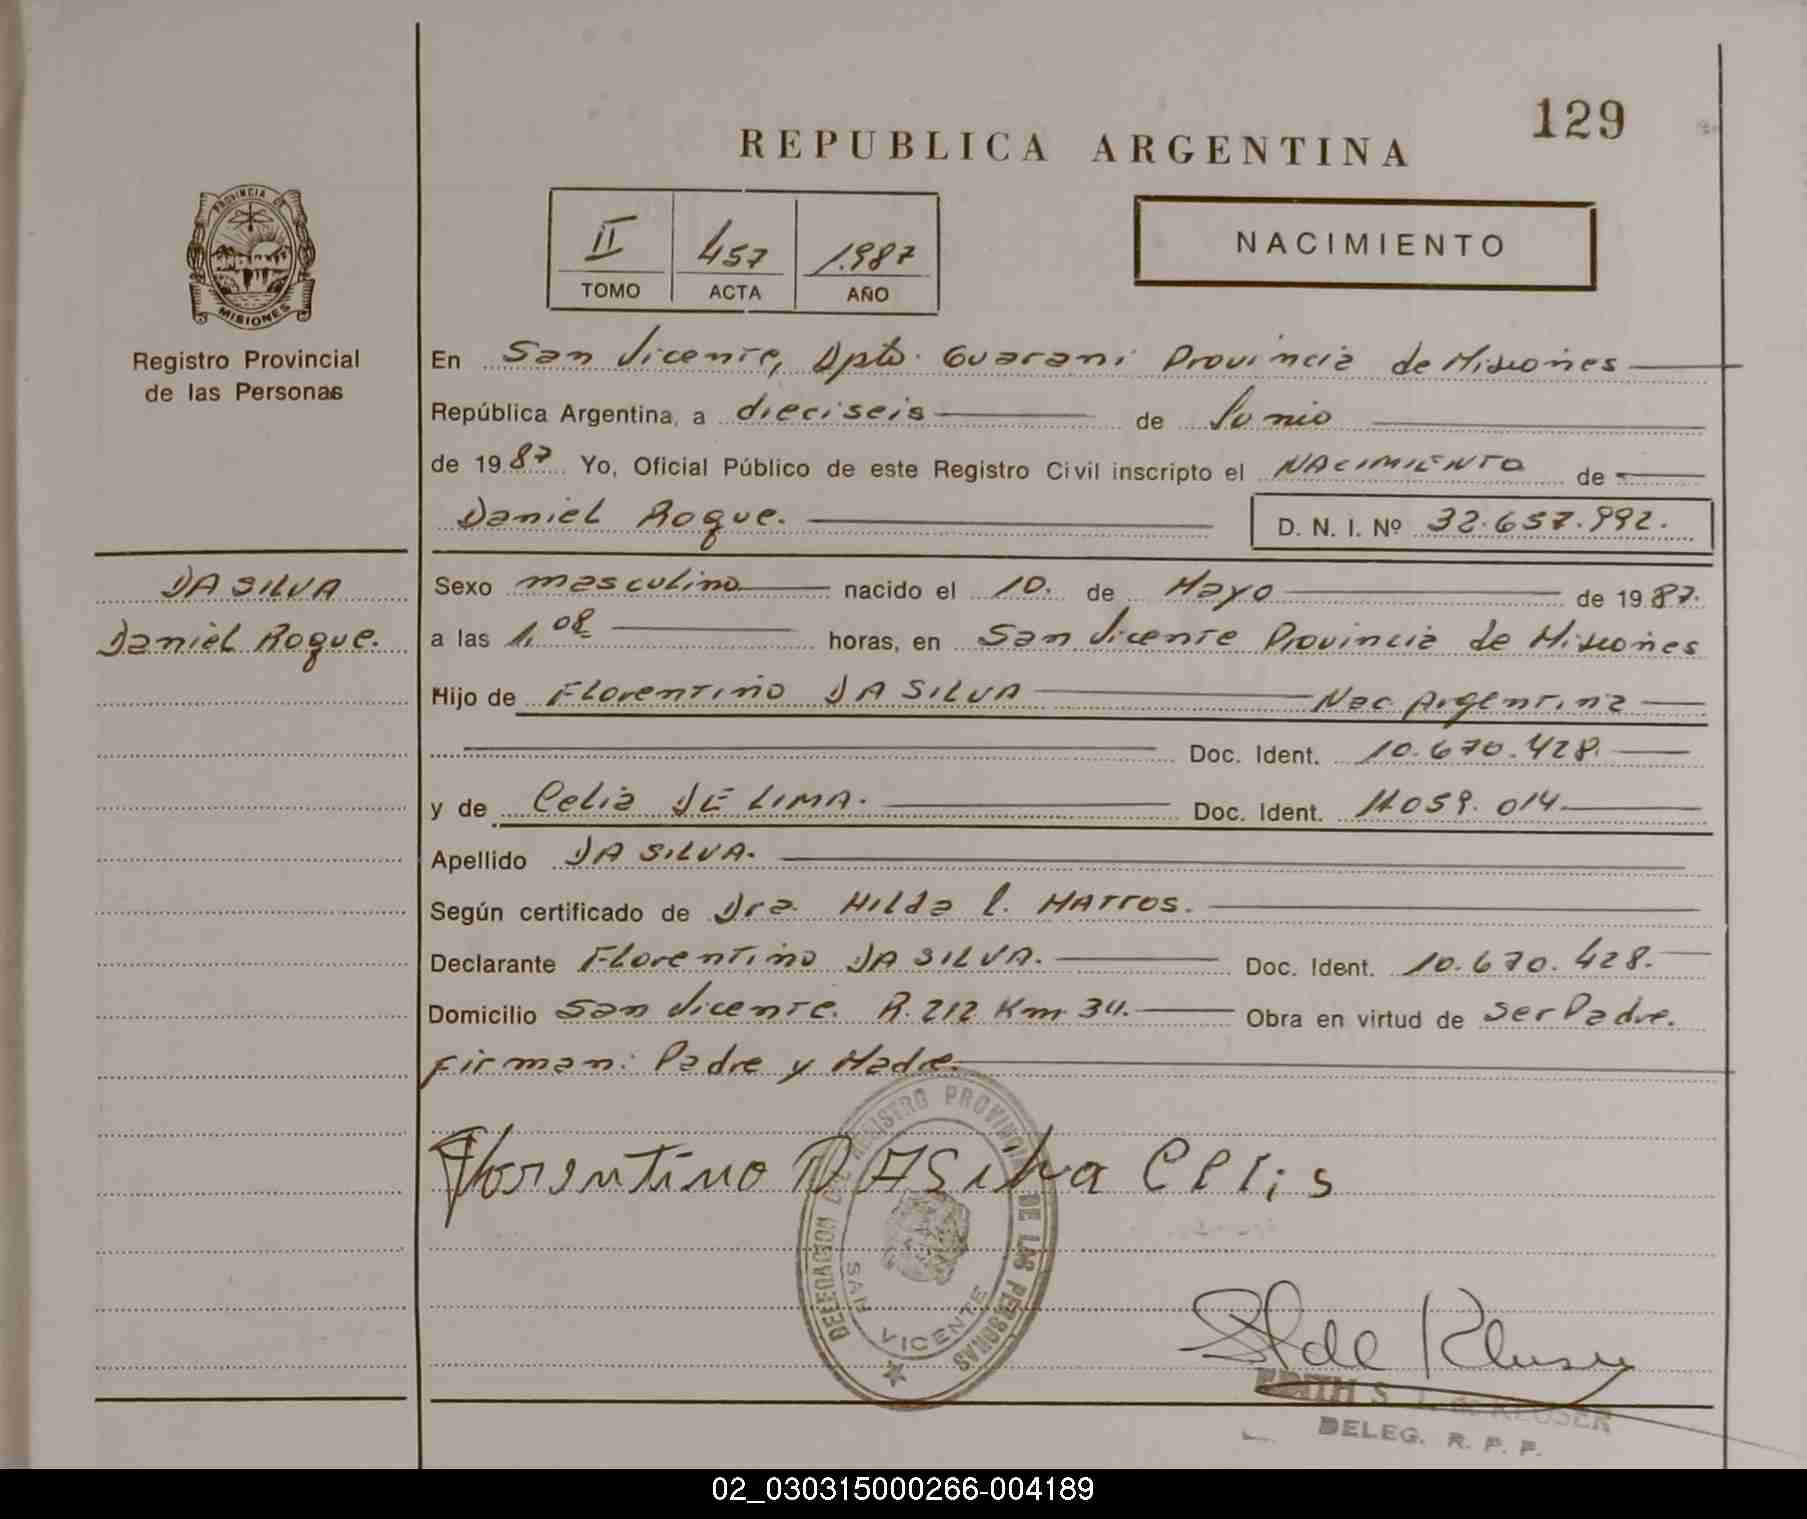 129
REPUBLICA ARGENTINA
PROVINCIA DE
MISIONES
Registro Provincial
de las Personas
II 457 1.987
TOMO ACTA AÑO
NACIMIENTO
En San Vicente, Dpto. Guarani Provincia de Misiones
República Argentina, a dieciseis de Junio
de 1987 Yo, Oficial Público de este Registro Civil inscripto el NACIMIENTO de
Daniel Roque. D. N. I. Nº 32.657.992.
DA SILVA
Daniel Roque.
Sexo masculino nacido el 10. de Mayo de 1987.
a las 1,08 horas, en San Vicente Provincia de Misiones
Hijo de Florentino DA SILVA Nac Argentina
Doc. Ident. 10.670.428.
y de Celia DE LIMA. Doc. Ident. 11.059.014
Apellido DA SILVA.
Según certificado de Dra. Hilda C. MATTOS.
Declarante Florentino DA SILVA. Doc. Ident. 10.670.428.
Domicilio San Vicente. R. 212 Km 34. Obra en virtud de ser Padre.
Firman: Padre y Madre.
Florentino DASilva Celis
DELEGACION DE REGISTRO PROVINCIAL DE LAS PERSONAS
SAN VICENTE
EDITH S. de KLUSER
DELEG. R. P. P.
02_030315000266-004189